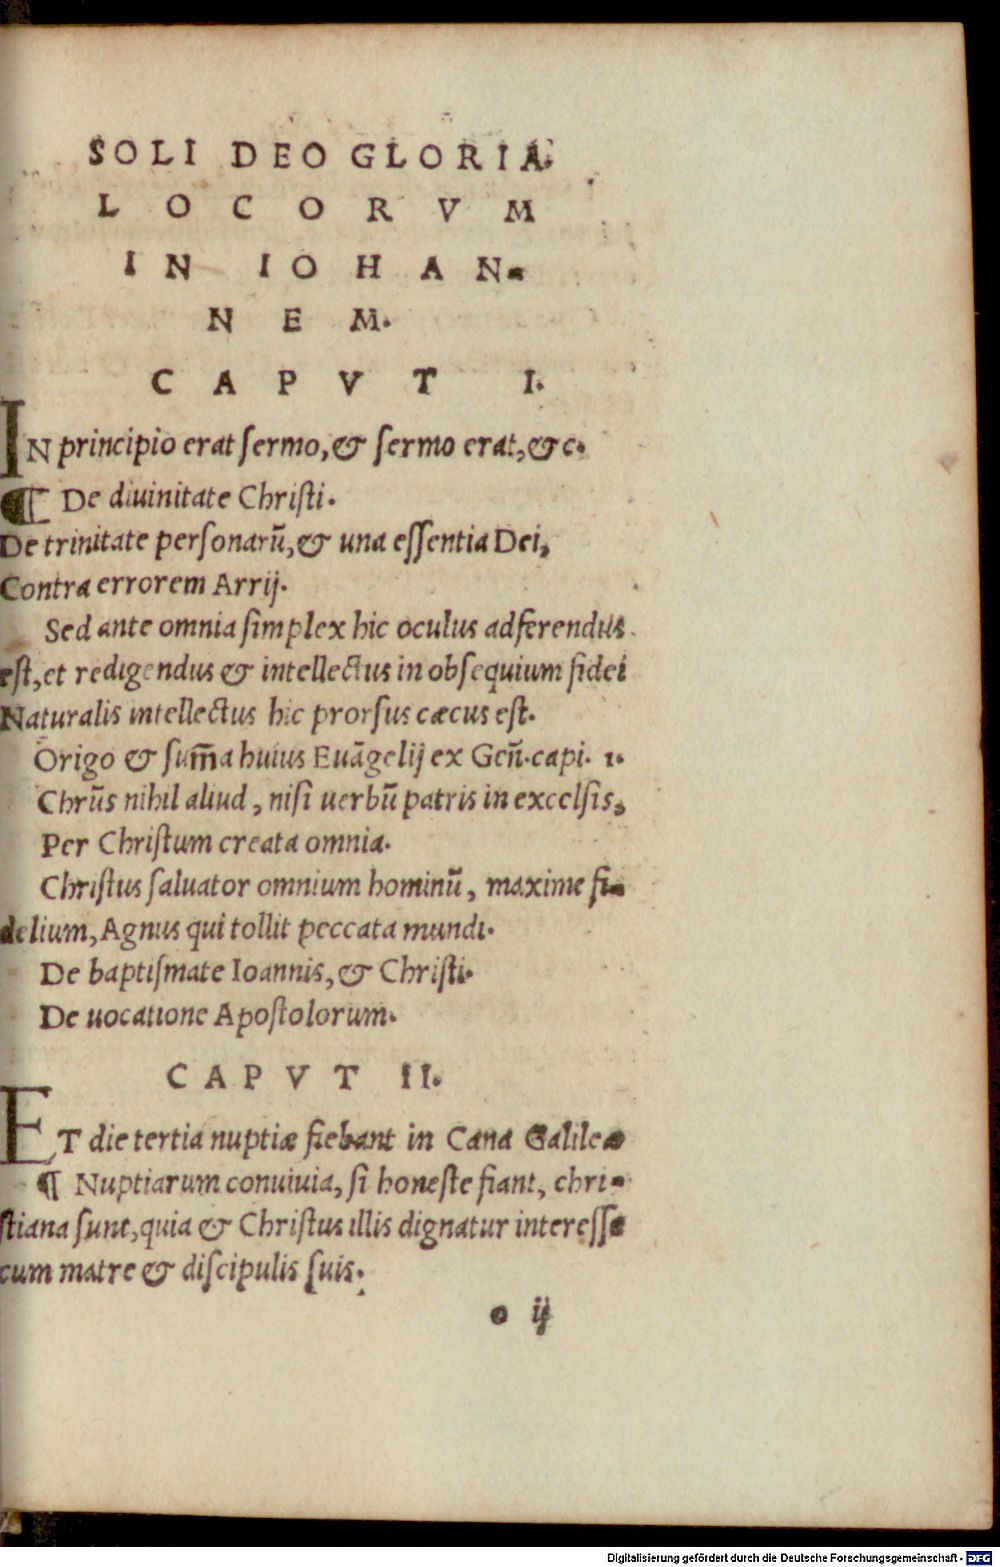 SOLI DEO GLORIA.
LOCORVM
IN IOHAN-
NEM.
CAPVT I.
IN principio erat sermo, & sermo erat, &c.
¶ De diuinitate Christi.
De trinitate personarū, & una essentia Dei,
Contra errorem Arrij.
Sed ante omnia simplex hic oculus adferendus
est, et redigendus & intellectus in obsequium fidei
Naturalis intellectus hic prorsus cæcus est.
Origo & sum̄a huius Euāgelij ex Geñ. capi. 1.
Chrūs nihil aliud, nisi uerbū patris in excelsis,
Per Christum creata omnia.
Christus saluator omnium hominū, maxime fi-
delium, Agnus qui tollit peccata mundi.
De baptismate Ioannis, & Christi.
De uocatione Apostolorum.
CAPVT II.
ET die tertia nuptiæ fiebant in Cana Galileæ
¶ Nuptiarum conuiuia, si honeste fiant, chri-
stiana sunt, quia & Christus illis dignatur interesse
cum matre & discipulis suis.
o ij
Digitalisierung gefördert durch die Deutsche Forschungsgemeinschaft - DFG